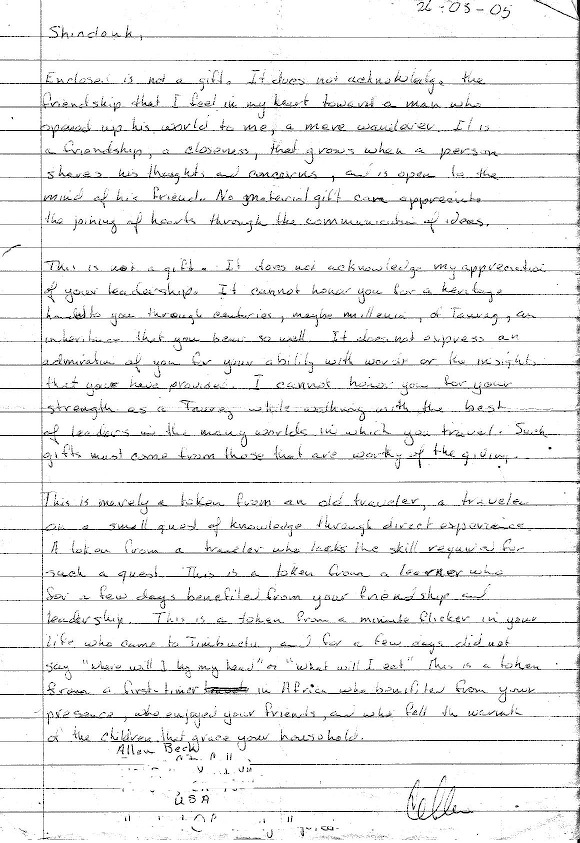 26-03-05
Shindouk,
Enclosed is not a gift. It does not acknowledge the
friendship that I feel in my heart toward a man who
opened up his world to me, a mere wanderer. It is
a friendship, a closeness, that grows when a person
shares his thoughts and concerns, and is open to the
mind of his friend. No material gift can appreciate
the joining of hearts through the communication of ideas.
This is not a gift. It does not acknowledge my appreciation
of your leadership. It cannot honor you for a heritage
handed to you through centuries, maybe millenia, of Tuareg, an
inheritance that you bear so well. It does not express an
admiration of you for your ability with words or the insights
that you have provided. I cannot honor you for your
strength as a Tuareg while walking with the best
of leaders in the many worlds in which you travel. Such
gifts must come from those that are worthy of the giving.
This is merely a token from an old traveler, a traveler
on a small quest of knowledge through direct experience.
A token from a traveler who lacks the skill required for
such a quest. This is a token from a learner who
for a few days benefited from your friendship and
leadership. This is a token from a minute flicker in your
life who came to Timbuctu, and for a few days did not
say "where will I lay my head" or "what will I eat". This is a token
from a first-timer in Africa who benefited from your
presence, who enjoyed your friends, and who felt the warmth
of the children that grace your household.
Allen Beck
USA